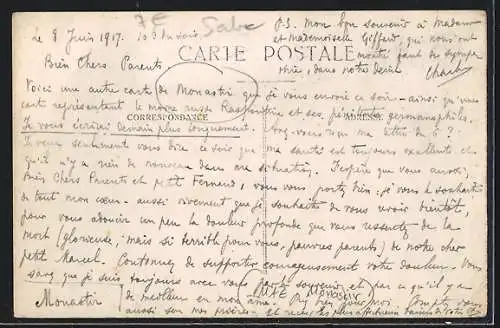 le 8 Juin 1917. 10 h du soir.
7E
Salve
P.S. Mon bon souvenir à Madame
et Mademoiselle Giffard, qui nous ont
montré tant de sympa-
thie, dans notre deuil
Charles
CARTE POSTALE
Bien Chers Parents
Voici une autre carte de Monastir que je vous envoie ce soir - ainsi qu'une
carte représentant le moine russe Raspoutine et ses germanophiles.
CORRESPONDANCE
ADRESSE
Je vous écrirai demain plus longuement. Avez-vous reçu ma lettre du 5 ?
Je veux seulement vous dire ce soir que ma santé est toujours excellente et
qu'il n'y a rien de nouveau dans ma situation. J'espère que vous aussi,
Bien Chers Parents et petit Fernand, vous vous portez bien; je vous le souhaite
de tout mon cœur - aussi vivement que je souhaite de vous revoir bientôt,
pour vous adoucir un peu la douleur profonde que vous ressentez de la
mort (glorieuse, mais si terrible pour vous, pauvres parents) de notre cher
petit Marcel. Continuez de supporter courageusement votre douleur. Vous
savez que je suis toujours avec vous par le souvenir et par ce qu'il y a
de meilleur en mon âme. bien pour moi. Comptez
aussi sur mes prières - et recevez les plus affectueux baisers de votre fils
Monastir
CAFÉ MONASTIR